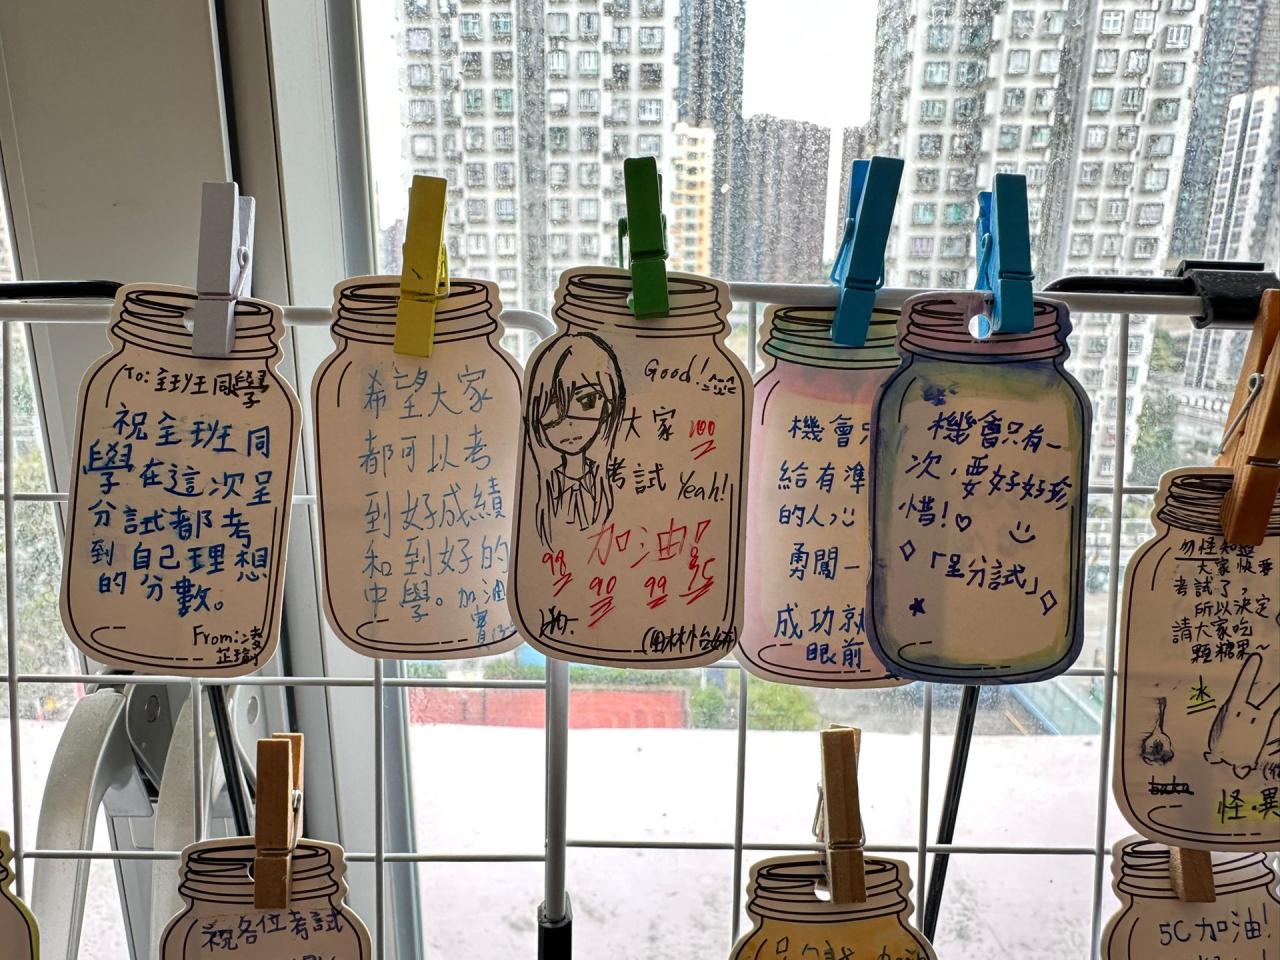 To: 全班同學
祝全班同
學在這次呈
分試都考
到自己理想
的分數。
From: 凌
芷瑜
希望大家
都可以考
到好成績
和到好的
中學。加油
Good!
大家 100
考試 Yeah!
加油!
98 90 99 95
機會只
給有準
的人
勇闖一
成功就
眼前
機會只有一
次,要好好珍
惜!♡
「呈分試」
大家快要
考試了,
所以決定
請大家吃
顆糖果~
怪.異
祝各位考試
5C加油!